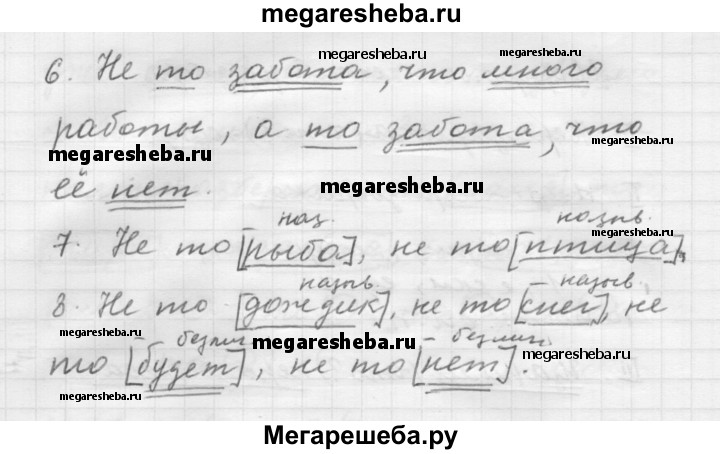 megaresheba.ru
megaresheba.ru
megaresheba.ru
6. Не то забота, что много
работы, а то забота, что
megaresheba.ru
megaresheba.ru
её нет.
megaresheba.ru
наз. назыв.
7. Не то [рыба], не то [птица],
megaresheba.ru
назыв. – назыв.
8. Не то [дождик], не то [снег], не
megaresheba.ru
– безлич – безлич
megaresheba.ru
то [будет], не то [нет].
megaresheba.ru
megaresheba.ru
Мегарешеба.ру